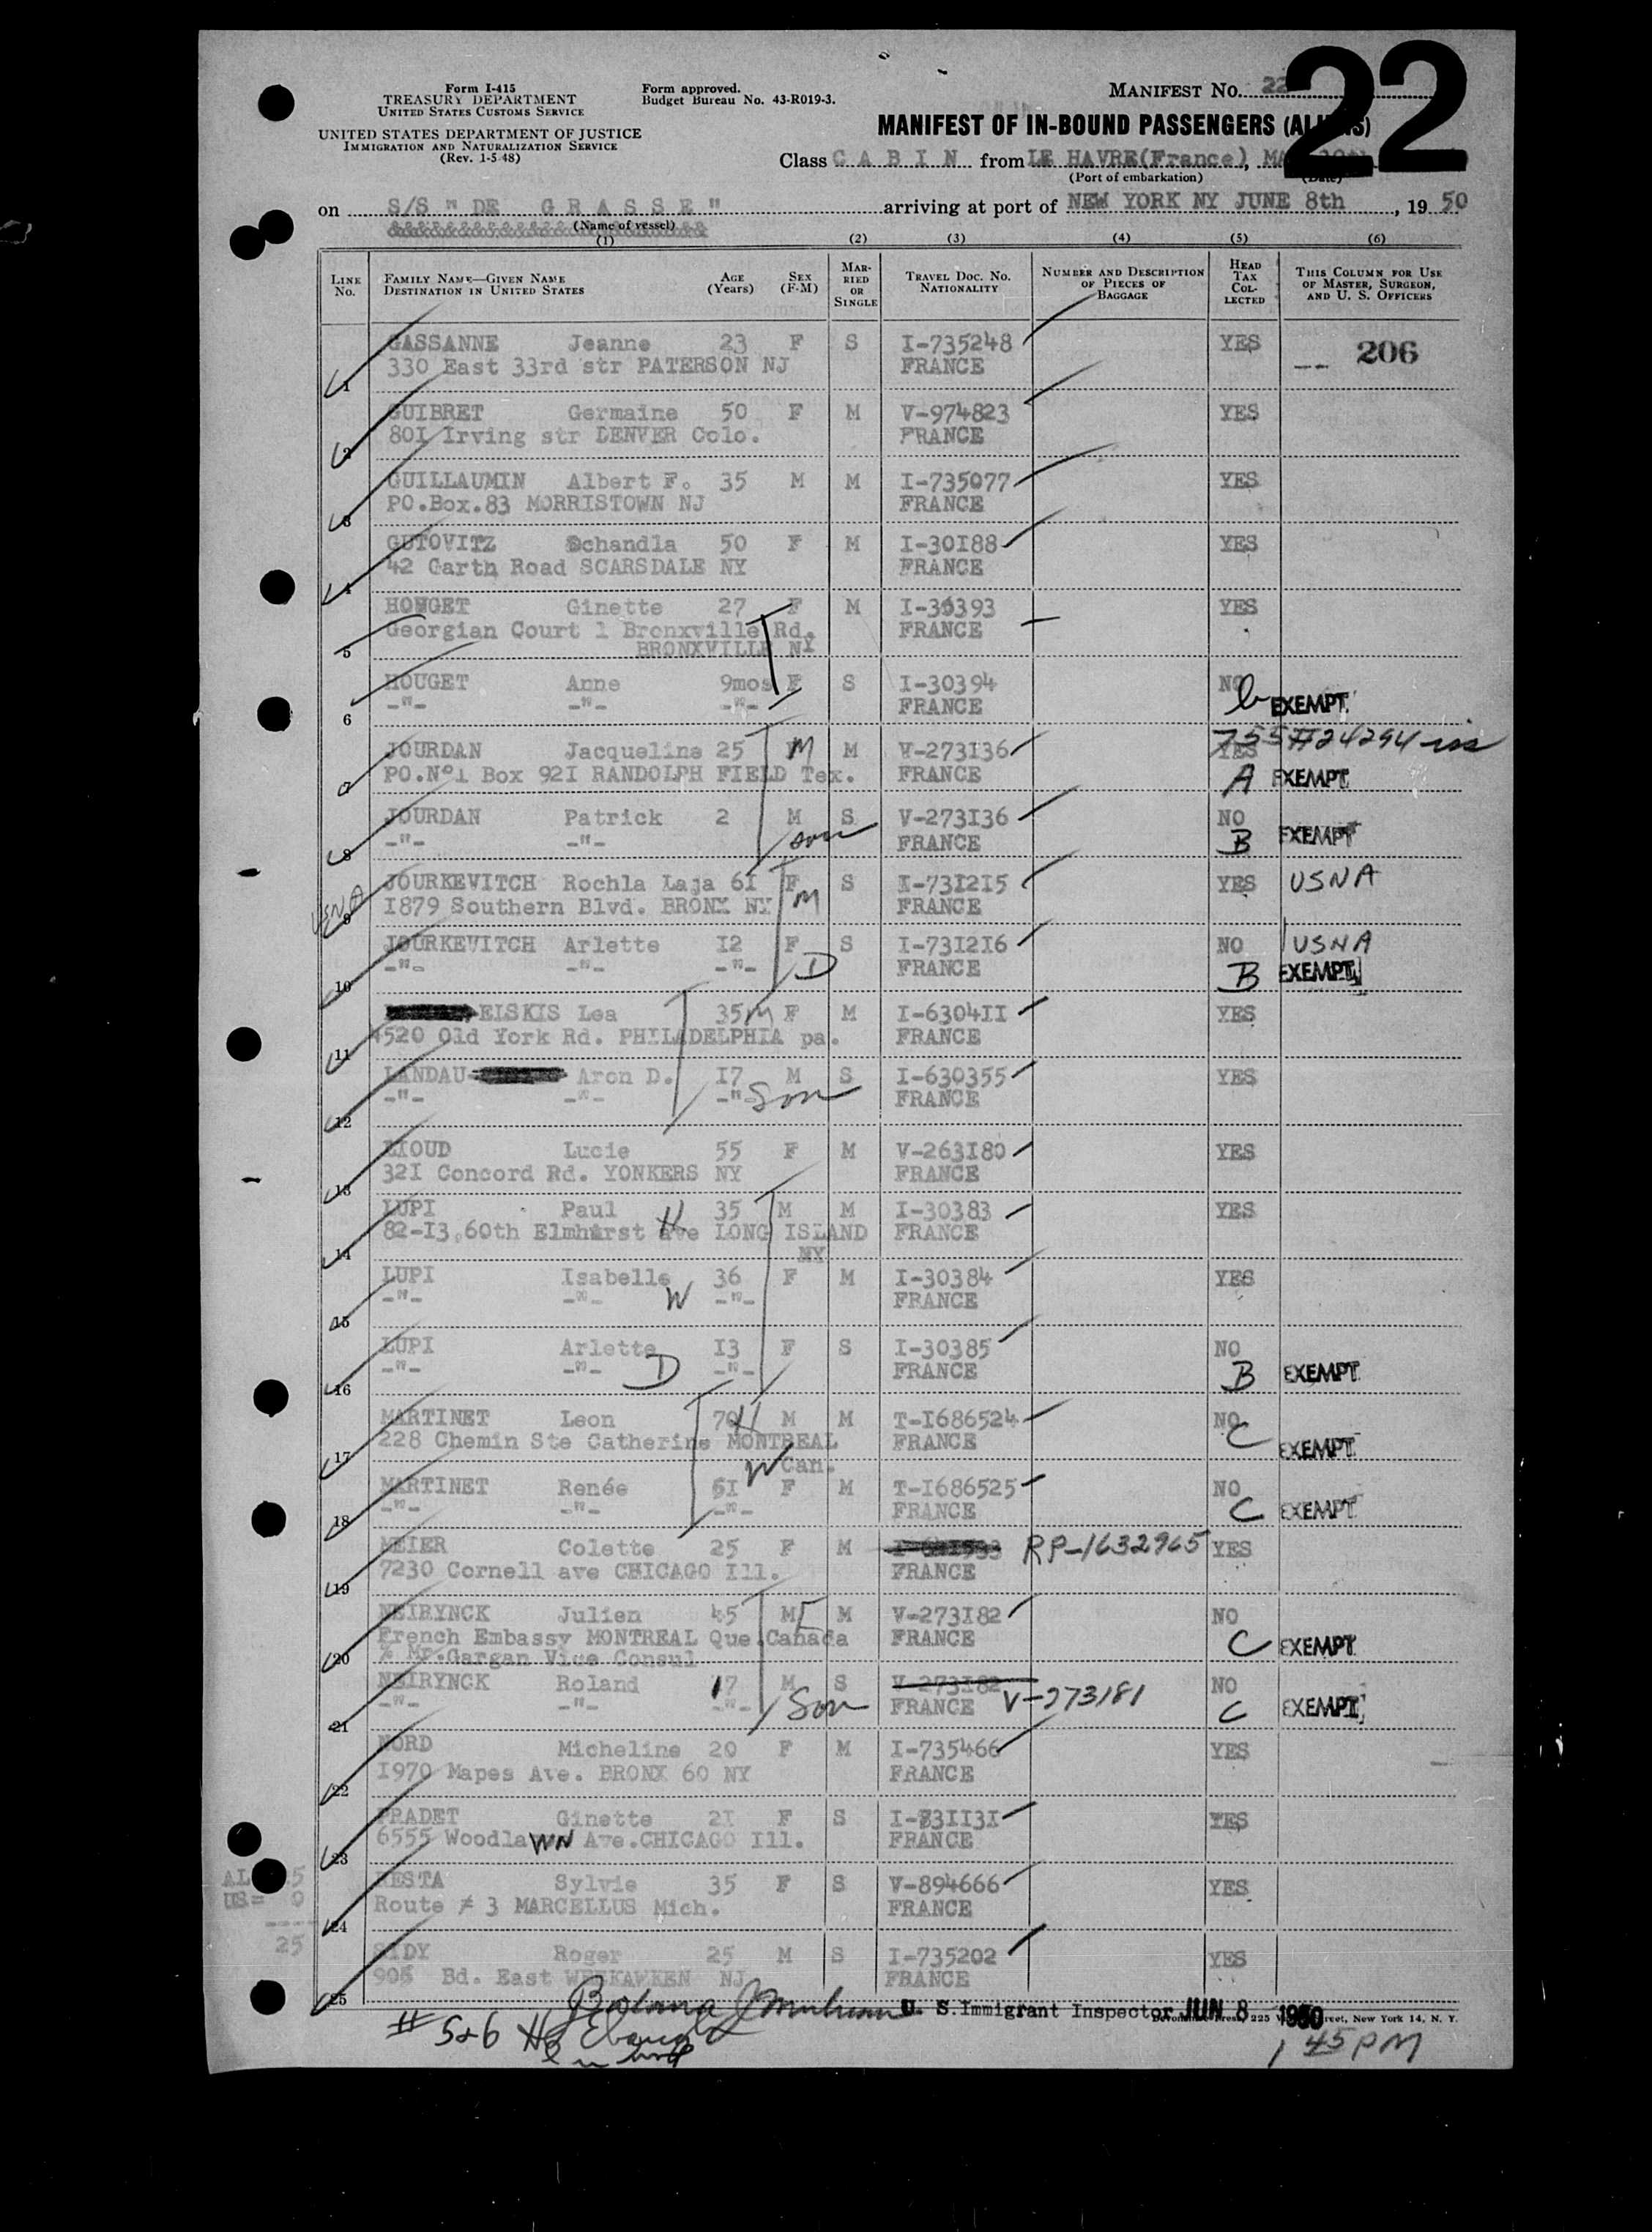 22
Form I-415
TREASURY DEPARTMENT
UNITED STATES CUSTOMS SERVICE
UNITED STATES DEPARTMENT OF JUSTICE
IMMIGRATION AND NATURALIZATION SERVICE
(Rev. 1-5-48)
Form approved.
Budget Bureau No. 43-R019-3.
MANIFEST NO. 22
MANIFEST OF IN-BOUND PASSENGERS (ALIENS)
Class C A B I N from LE HAVRE(France),
(Port of embarkation) (Date)
on S/S " DE G R A S S E" arriving at port of NEW YORK NY JUNE 8th, 19 50
(Name of vessel)
(1) (2) (3) (4) (5) (6)
LINE No. FAMILY NAME—GIVEN NAME DESTINATION IN UNITED STATES AGE (Years) SEX (F-M) MARRIED OR SINGLE TRAVEL DOC. NO. NATIONALITY NUMBER AND DESCRIPTION OF PIECES OF BAGGAGE HEAD TAX COLLECTED THIS COLUMN FOR USE OF MASTER, SURGEON, AND U. S. OFFICERS
GASSANNE Jeanne 23 F S I-735248 YES 206
1 330 East 33rd str PATERSON NJ FRANCE
GUIBRET Germaine 50 F M V-974823 YES
2 80I Irving str DENVER Colo. FRANCE
GUILLAUMIN Albert F. 35 M M I-735077 YES
3 PO.Box.83 MORRISTOWN NJ FRANCE
GUTOVITZ Schandla 50 F M I-30I88 YES
4 42 Garth Road SCARSDALE NY FRANCE
HOUGET Ginette 27 F M I-30393 YES
5 Georgian Court 1 Bronxville Rd. FRANCE
BRONXVILLE NY
HOUGET Anne 9mos F S I-30394 NO
6 -"- -"- -"- FRANCE b EXEMPT
755#24294
JOURDAN Jacqueline 25 M M V-273I36 YES
7 PO.N°1 Box 92I RANDOLPH FIELD Tex. FRANCE A EXEMPT
JOURDAN Patrick 2 M S V-273I36 NO
8 -"- -"- son FRANCE B EXEMPT
USNA
JOURKEVITCH Rochla Laja 6I F S I-73I2I5 YES USNA
9 I879 Southern Blvd. BRONX NY M FRANCE
JOURKEVITCH Arlette I2 F S I-73I2I6 NO USNA
10 -"- -"- -"- D FRANCE B EXEMPT
EISKIS Lea 35 M F M I-6304II YES
11 4520 Old York Rd. PHILADELPHIA pa. FRANCE
LANDAU Aron D. I7 M S I-630355 YES
12 -"- -"- -"- Son FRANCE
LIOUD Lucie 55 F M V-263I80 YES
13 32I Concord Rd. YONKERS NY FRANCE
LUPI Paul H 35 M M I-30383 YES
14 82-I3,60th Elmhurst ave LONG ISLAND FRANCE
NY
LUPI Isabelle W 36 F M I-30384 YES
15 -"- -"- -"- FRANCE
LUPI Arlette I3 F S I-30385 NO
16 -"- -"- D -"- FRANCE B EXEMPT
MARTINET Leon 70 H M M T-I686524 NO
17 228 Chemin Ste Catherine MONTREAL FRANCE C EXEMPT
W Can.
MARTINET Renée 6I F M T-I686525 NO
18 -"- -"- -"- FRANCE C EXEMPT
MEIER Colette 25 F M RP-1632965 YES
19 7230 Cornell ave CHICAGO Ill. FRANCE
NEIRYNCK Julien 45 M F M V-273I82 NO
20 French Embassy MONTREAL Que.Canada FRANCE C EXEMPT
% Mr.Gargan Vice Consul
NEIRYNCK Roland 17 M S V-273I82 NO
21 -"- -"- -"- Son FRANCE V-273181 C EXEMPT
NORD Micheline 20 F M I-735466 YES
22 I970 Mapes Ave. BRONX 60 NY FRANCE
PRADET Ginette 2I F S I-83II3I YES
23 6555 Woodlawn Ave.CHICAGO Ill. FRANCE
RESTA Sylvie 35 F S V-894666 YES
24 Route # 3 MARCELLUS Mich. FRANCE
US= 0
25
SIDY Roger 25 M S I-735202 YES
25 905 Bd. East WEEKAWKEN NJ FRANCE
U. S. Immigrant Inspector JUN 8 1950 Street, New York 14, N. Y.
# 5&6
1 45 PM